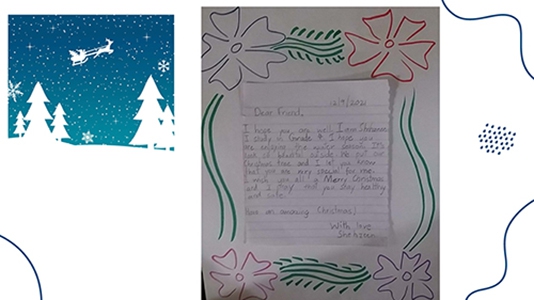 12/9/2021
Dear Friend,
I hope you are well. I am
I study in Grade 4. I hope you
are enjoying the winter season. It's
kind of outside. We put our
Christmas tree and I let you know
that you are very special for me.
I wish you all a Merry Christmas
and I pray that you stay healthy
and safe.
Have an amazing Christmas!
With love